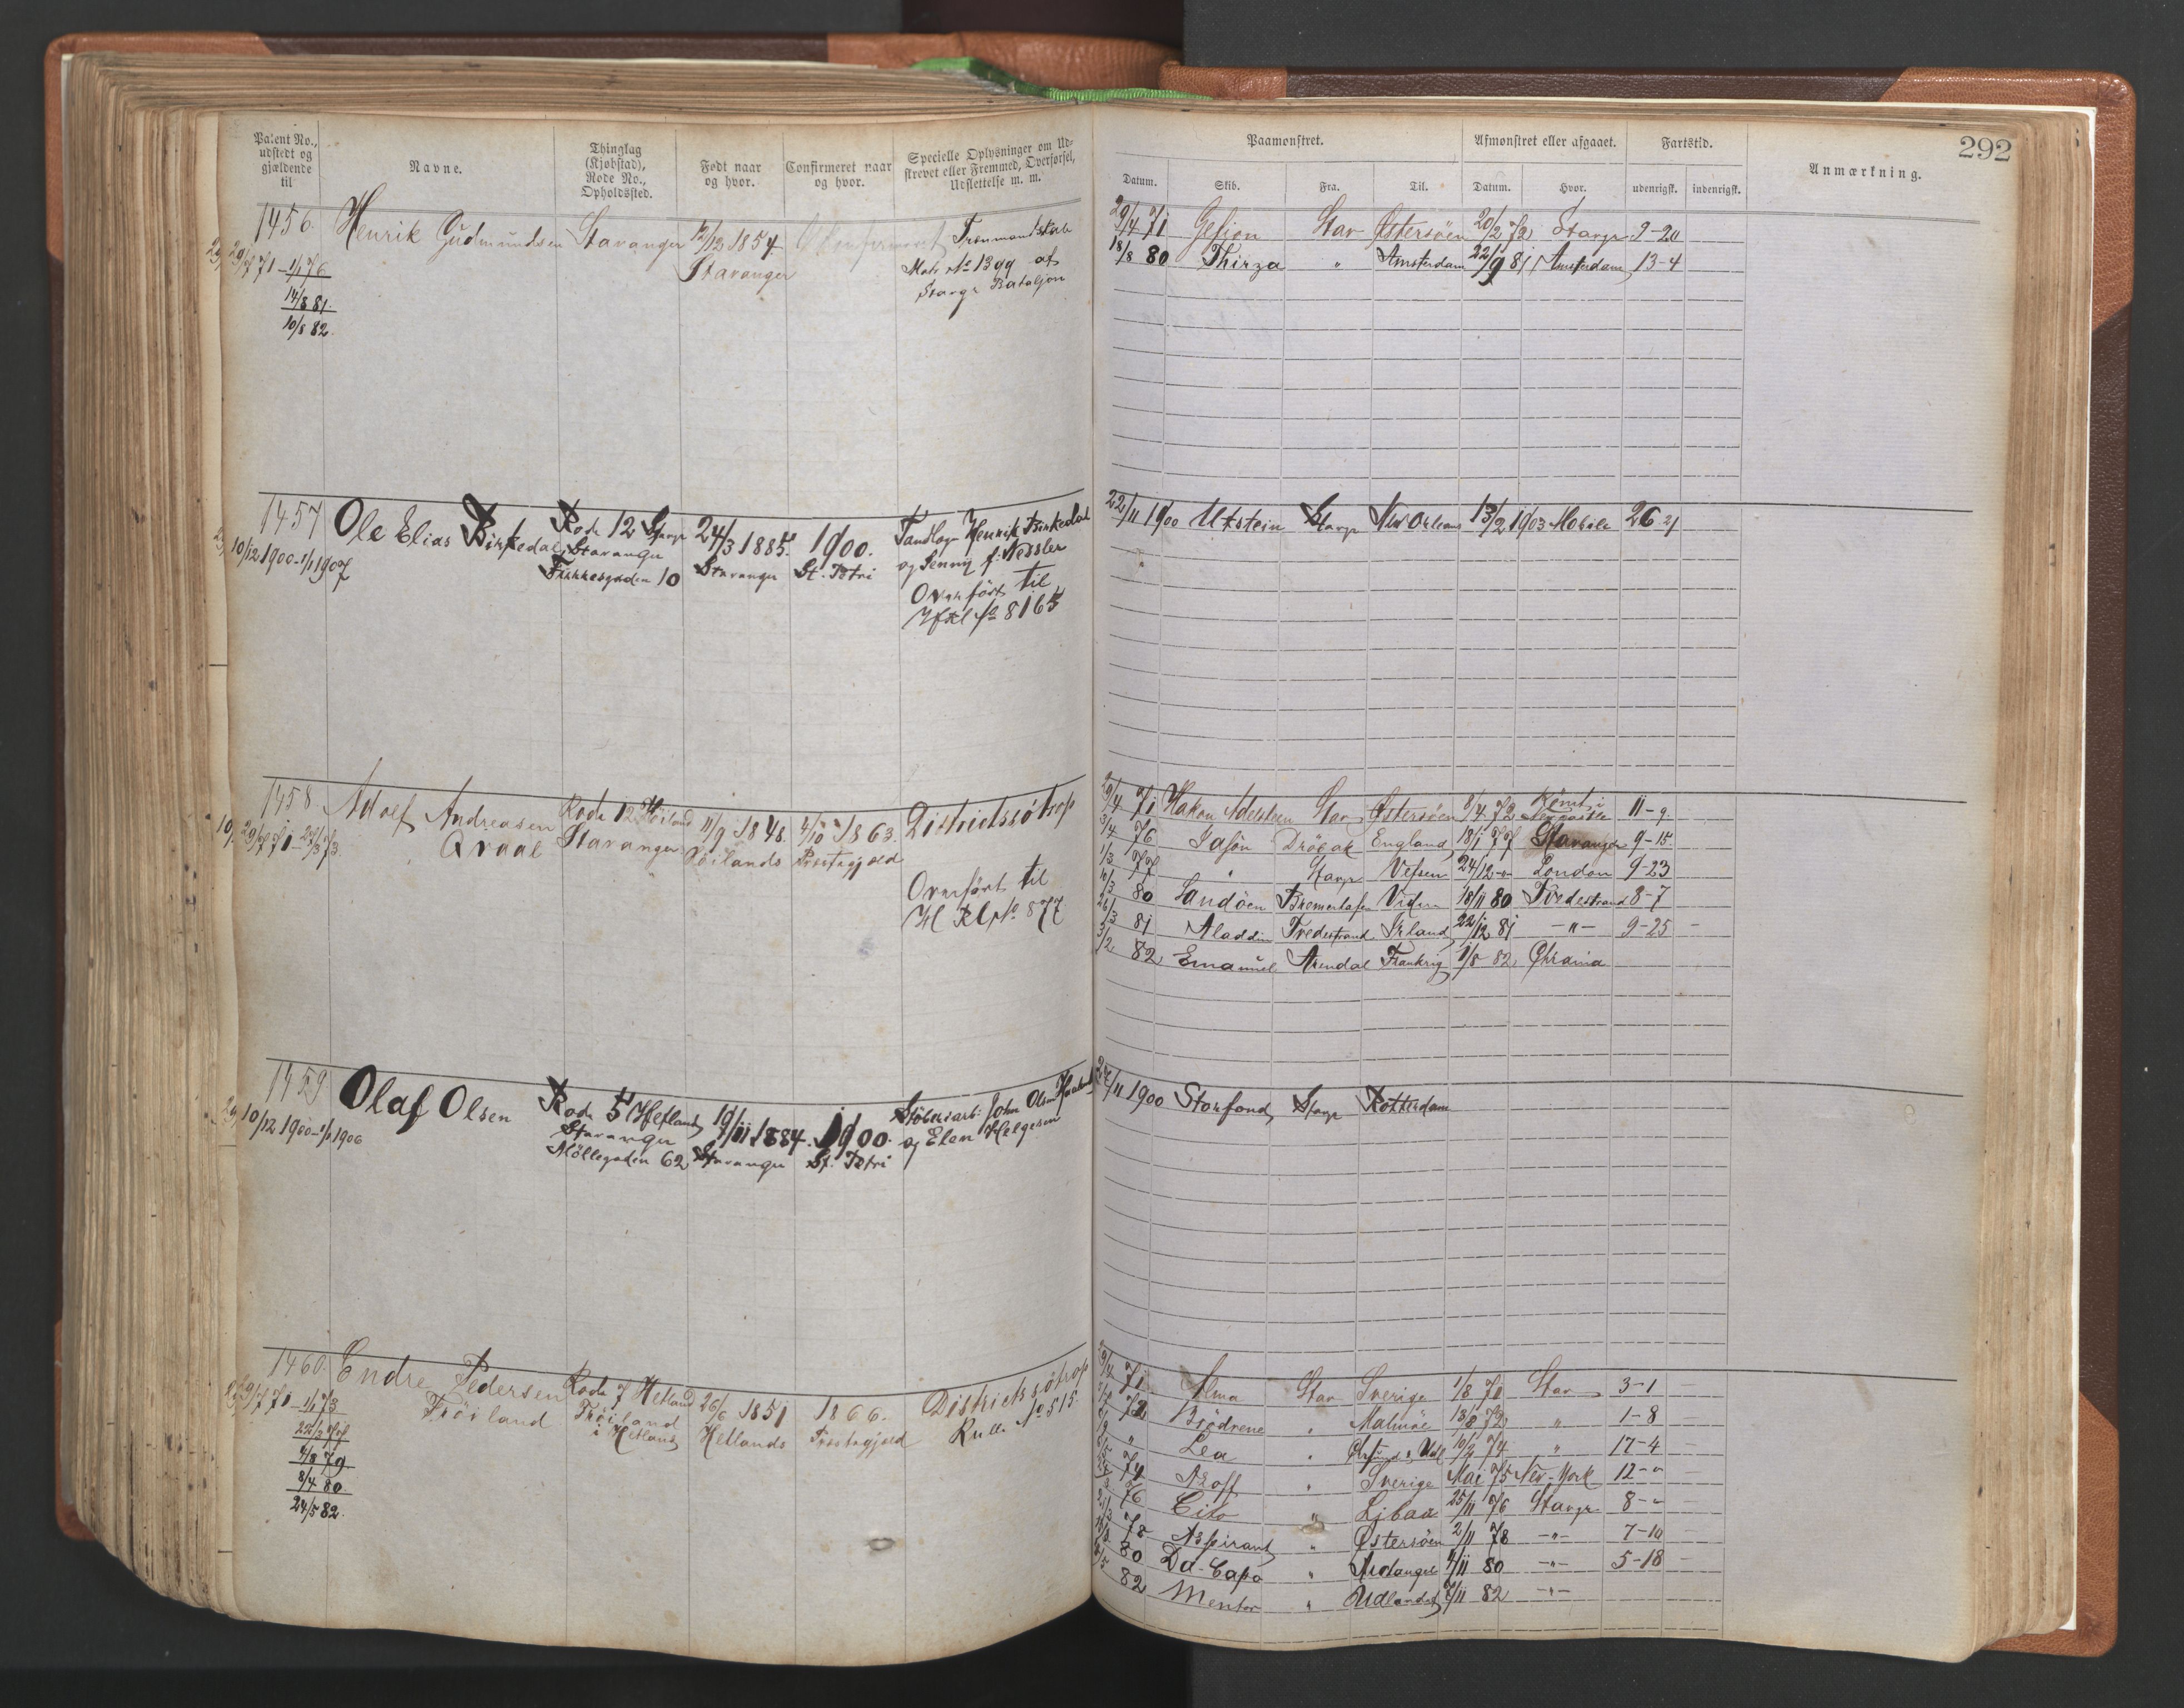 Patent No., udstedt og gjældende til
Navne.
Thinglag (Kjøbstad), Rode No., Opholdssted.
Født naar og hvor.
Confirmeret naar og hvor.
Specielle Oplysninger om Udstrevet eller Fremmed, Overførsel, Udslettelse m. m.
Paamønstret.
Afmønstret eller afgaaet.
Fartstid.
Anmærkning.
292
Datum. Skib. Fra. Til. Datum. Hvor. udenrigsk. indenrigsk.
1456. Henrik Gudmundsen Stavanger 12/12 1854.
Stavanger
29/7 71 – 1/1 76
14/8 81
10/8 82.
No 1399 af
Stavgr Bataljon
29/4 71 Gefion Stav Østersøen 20/2 72 Stavgr 9-20
18/8 80 Thirza " Amsterdam 22/9 81 Amsterdam 13-4
1457 Ole Elias Birkedal Rode 12 Stavgr 24/3 1885. 1900. Henrik Birkedal
Stavanger
10/12 1900 – 1/1 1907 10 Stavanger St. Petri og Jenny f. Nessler
Overført til
No 8165
22/11 1900 Utstein Stavgr New Orleans 13/2 1903 Mobile 26-21
1458. Adolf Andreasen Rode 12 Høiland 11/9 1848. 4/10 1863. Districtssøtrop
Qvaal Stavanger Høilands Præstegjæld
29/7 71 – 27/3 73.
Overført til
Hl Rl No 877
29/4 71 Hakon Adelsteen Stav Østersøen 8/4 72 Rømt i Newcastle 11-9.
3/4 76 Jasøn Drøbak England 18/1 77 Stavanger 9-15.
1/3 77 " Stavgr Vefsen 24/12 " London 9-23
10/3 80 Sandøen Bremerhafen 18/11 80 Tvedestrand 8-7
26/3 81 Aladdin Tvedestrand Irland 22/12 81 -"- 9-25 -
3/2 82 Emanuel Arendal Frankrig 1/8 82 Chrania
1459 Olaf Olsen Rode 5 Hetland 19/11 1884. 1900. John Olsen
Stavanger
10/12 1900 – 1/1 1906 Møllegaden 62 Stavanger St. Petri og Elen Helgesen
24/11 1900 Storfond Stavgr Rotterdam
1460. Endre Pedersen Rode 7 Hetland 26/6 1851 1866. Districtssøtrop
Frøiland Frøiland i Hetland Hetlands Præstegjæld Rulle No 515.
29/7 71 – 1/1 73
4/8 79
8/4 80
24/5 82.
29/4 71 Alma Stav Sverige 1/8 71 Stav 3-1
72 Brødrene " Malmöe 18/8 72 " 1-8
" Lea " 10/4 74 " 17-4
74 " Sverige Mai 75 New-York 12-"
76 Cito " Libau 25/11 76 Stavgr 8-"
78 Aspirant " Østersøen 2/11 78 -"- 7-10
80 Da-Capo " 4/11 80 -"- 5-18
82 Mentor " Udlandet 7/11 82 -"-